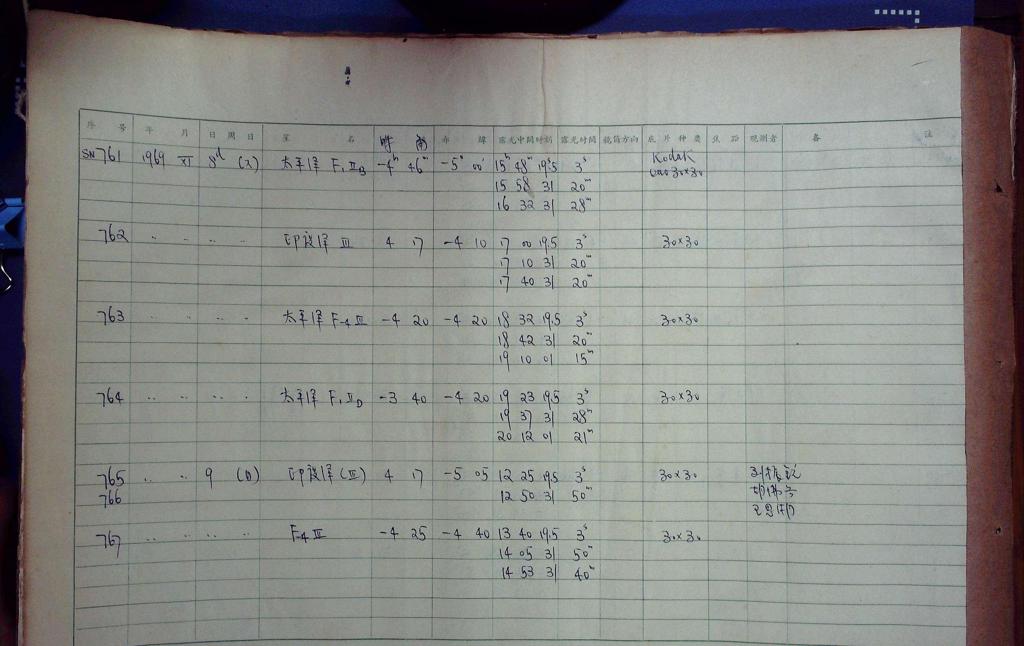 序号 年 月 日 周日 星 名 时角 赤纬 露光中间时刻 露光时间 镜筒方向 底片种类 焦距 观测者 备 注
SN761 1969 XI 8d (六) 太平洋 F1 IIB -4h 46m -5° 00' 15h 48m 19s.5 3s Kodak
15 58 31 20m 30×30
16 32 31 28m
762 .. .. .. .. 印度洋 III 4 17 -4 10 17 00 19.5 3s 30×30
17 10 31 20m
17 40 31 20m
763 .. .. .. .. 太平洋 F-4 III -4 20 -4 20 18 32 19.5 3s 30×30
18 42 31 20m
19 10 01 15m
764 .. .. .. .. 太平洋 F1 IID -3 40 -4 20 19 23 19.5 3s 30×30
19 37 31 28m
20 12 01 21m
765 .. .. 9 (日) 印度洋(III) 4 17 -5 05 12 25 19.5 3s 30×30
766 12 50 31 50m
767 .. .. .. .. F-4 III -4 25 -4 40 13 40 19.5 3s 30×30
14 05 31 50m
14 53 31 40m